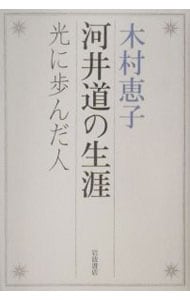 木村恵子
河井道の生涯
光に歩んだ人
岩波書店